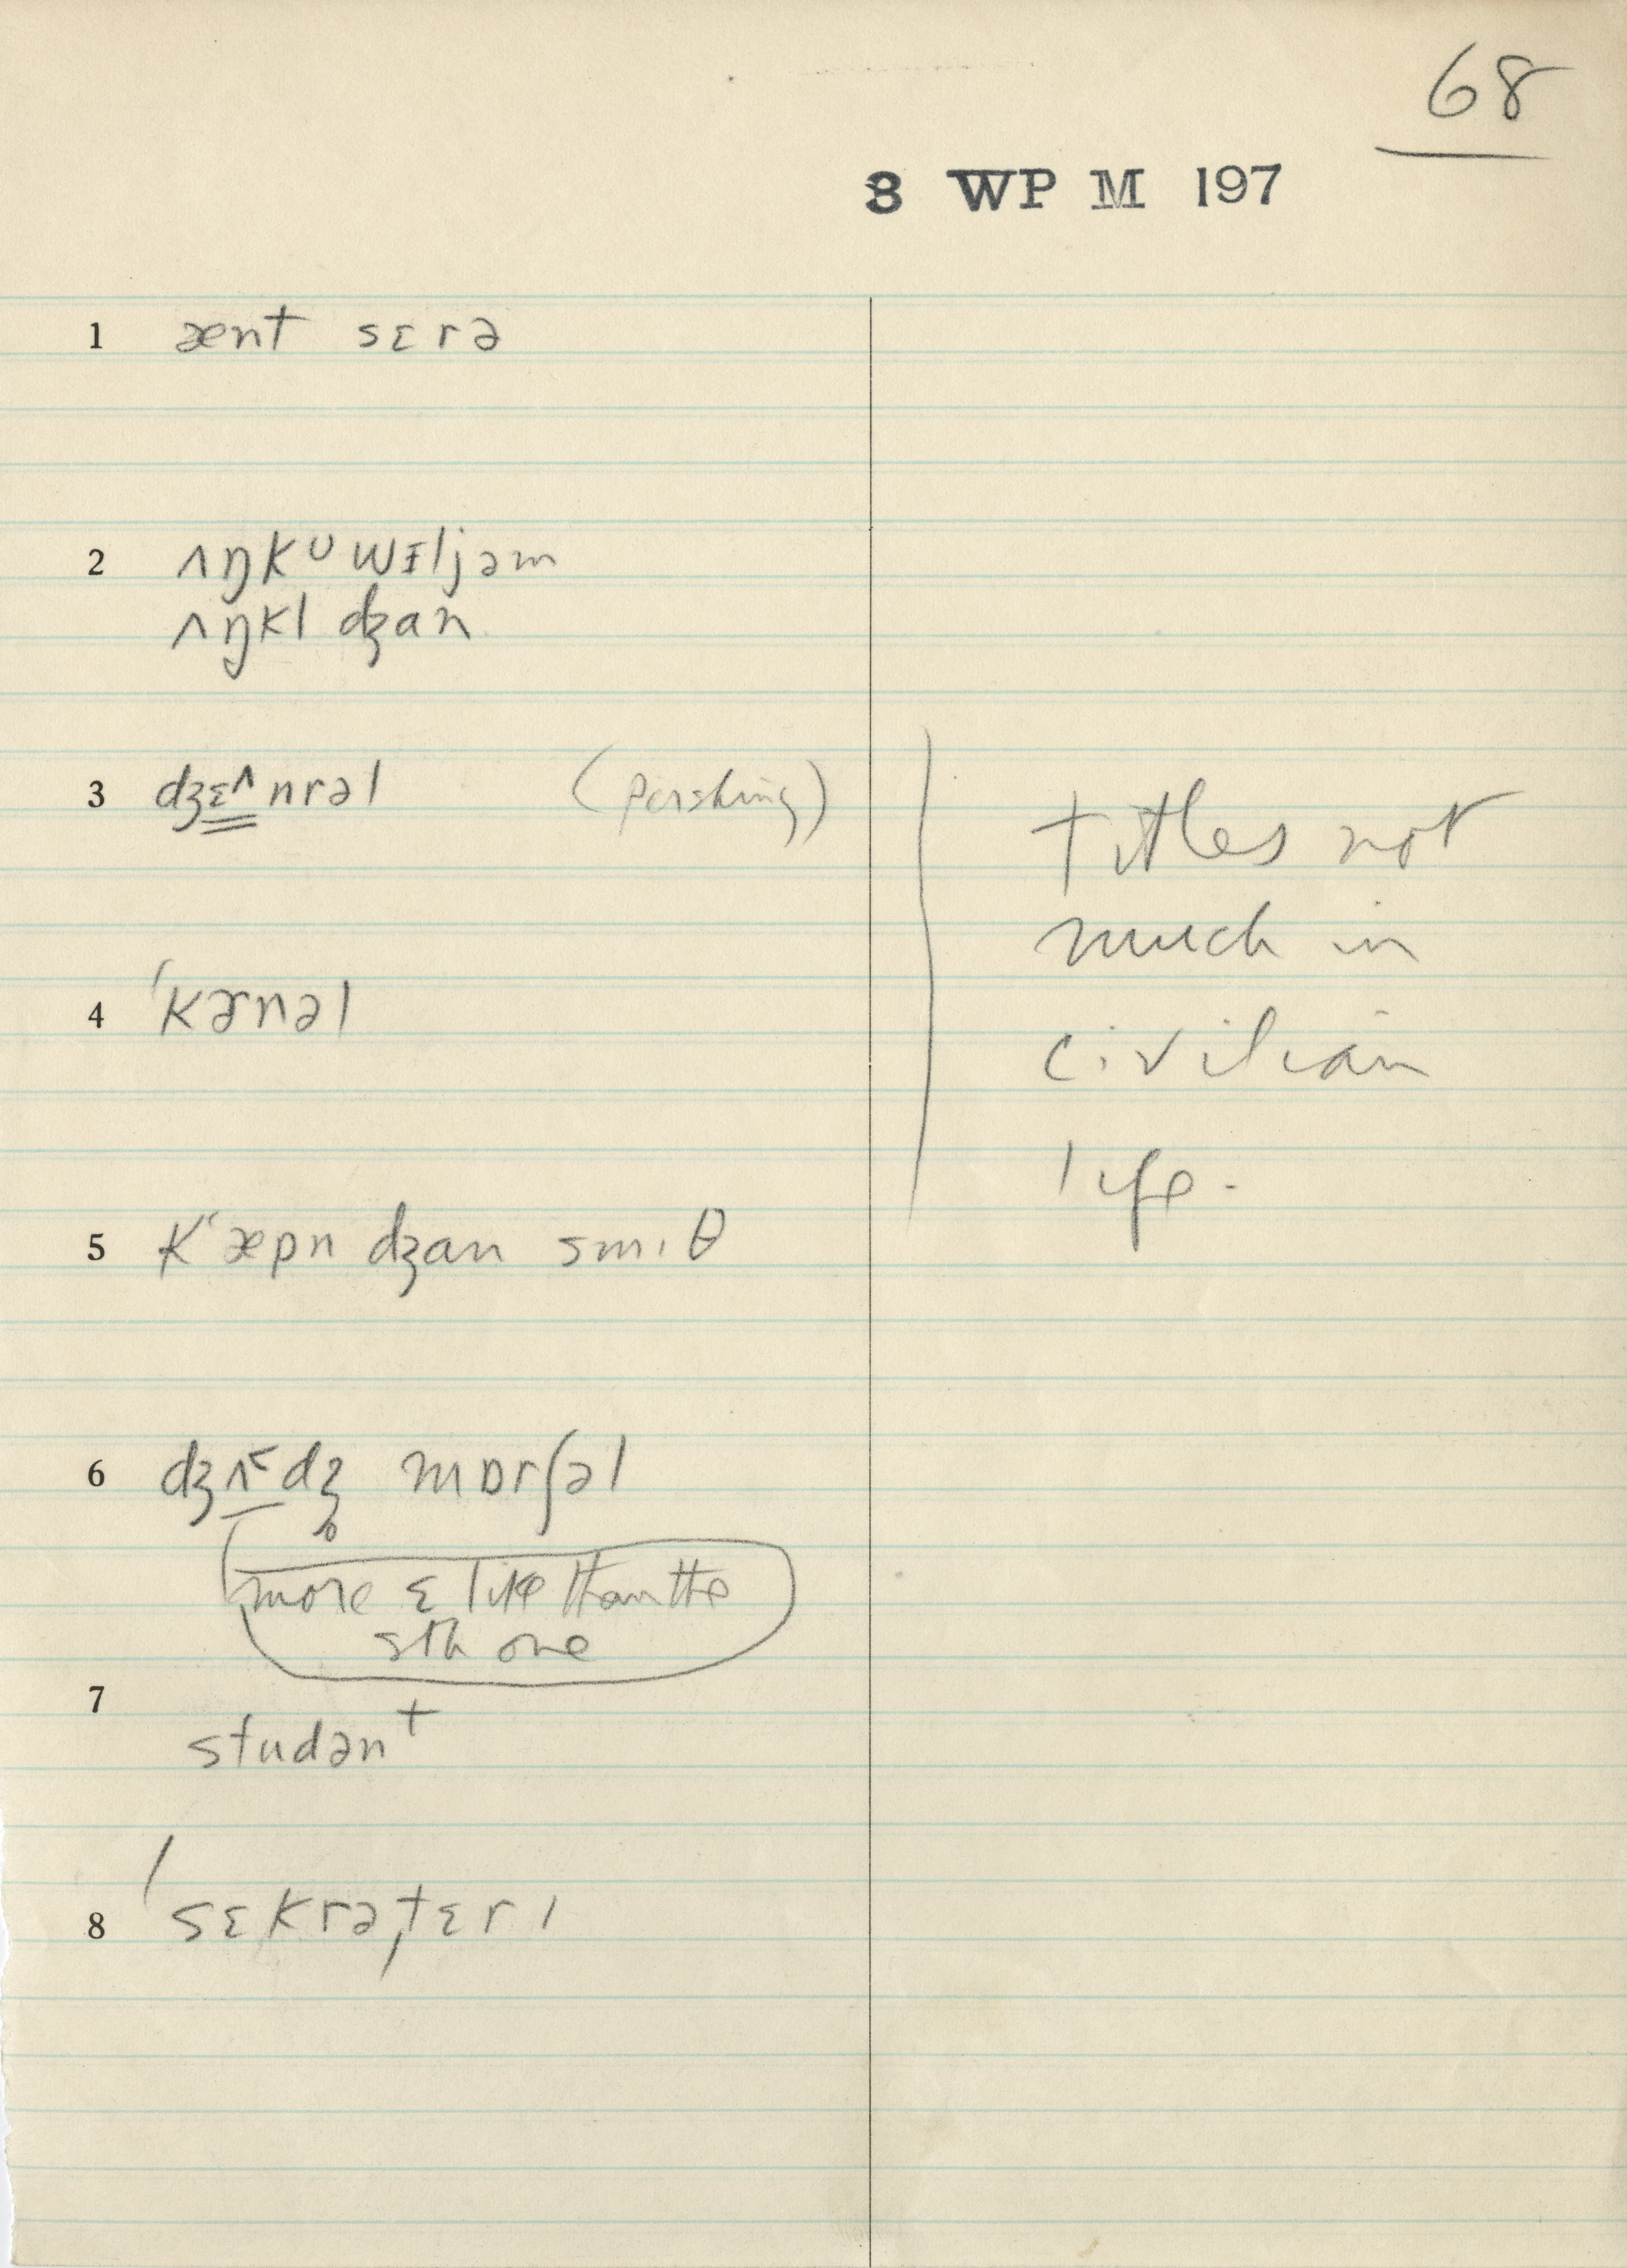 68
3 WP M 197
1 ænt sɛrə
2 ʌŋkᶷ wɪljəm
ʌŋkl dʒan
3 dʒɛ^nrəl (Pershing)
titles not
much in
civilian
life.
4 ˈkɚnəl
5 kʻæpn dʒan smɪθ
6 dʒʌᵋdʒ̥ mɒrʃəl
more ɛ like than the
sth one
7 studənᵗ
8 ˈsɛkrəˌtɛrɪ